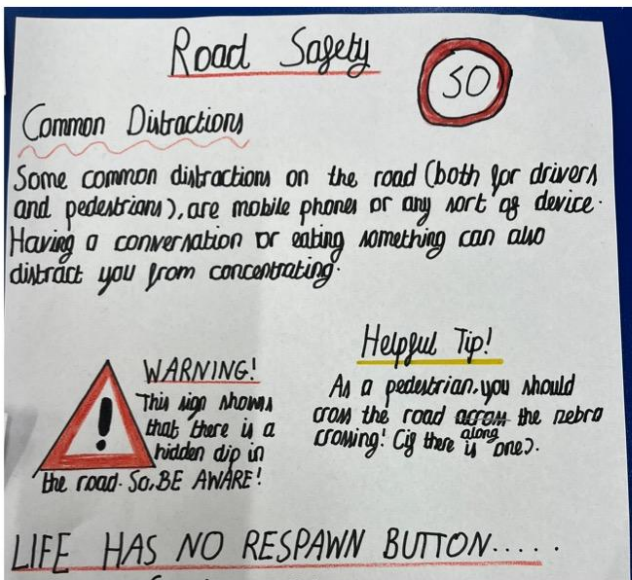 Road Safety
50
Common Distractions
Some common distractions on the road (both for drivers
and pedestrians), are mobile phones or any sort of device.
Having a conversation or eating something can also
distract you from concentrating.
WARNING!
This sign shows
that there is a
hidden dip in
the road. So, BE AWARE!
Helpful Tip!
As a pedestrian, you should
cross the road across the zebra
crossing! (if there is along one).
LIFE HAS NO RESPAWN BUTTON.....